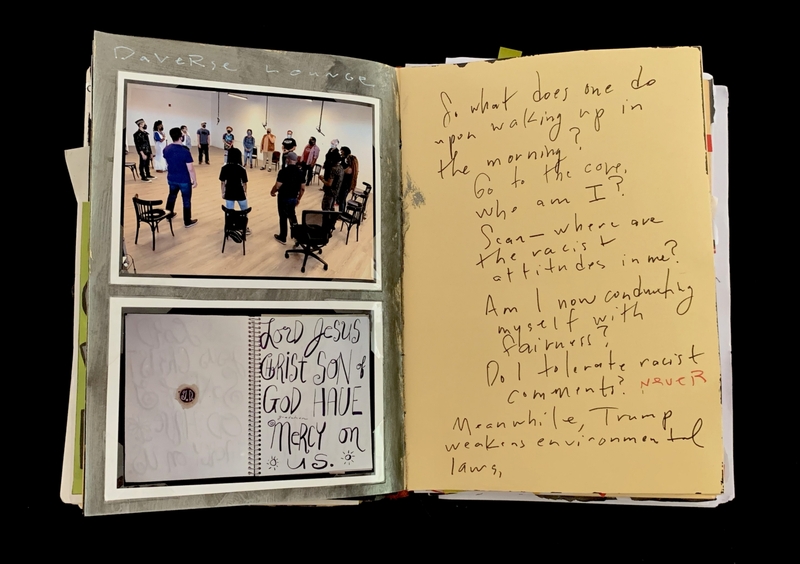 DaveRse Lounge
LORD JESUS
CHRIST SON of
GOD HAVE
MERCY on
US.
So what does one do
upon waking up in
the morning?
Go to the core.
Who am I?
Scan — where are
the racist
attitudes in me?
Am I now conducting
myself with
fairness?
Do I tolerate racist
comments? NEVER
Meanwhile, Trump
weakens environmental
laws,